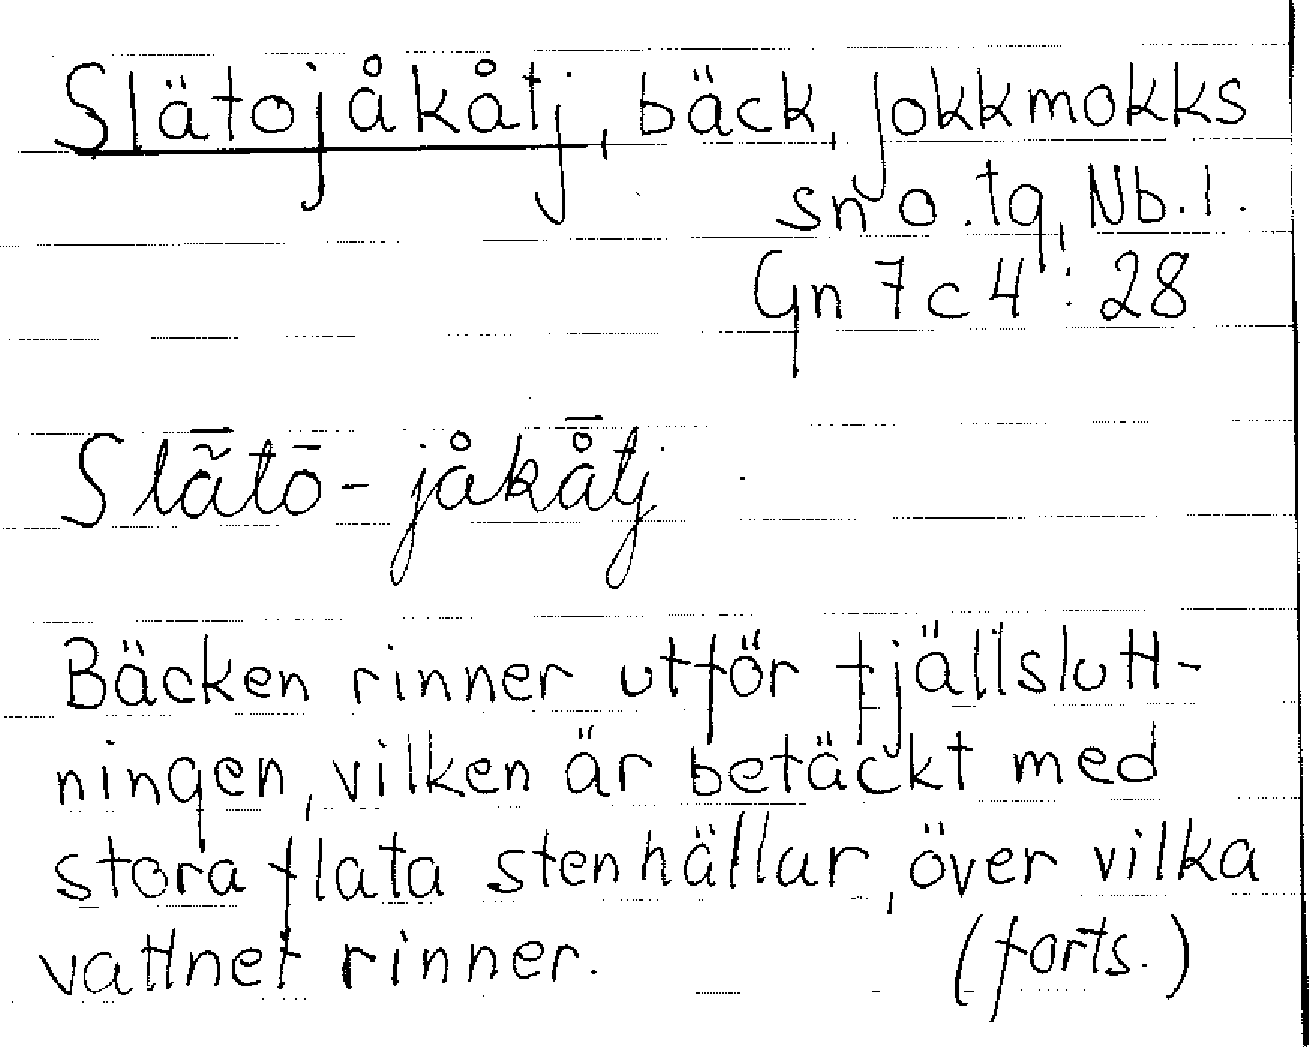 Slätojåkåtj, bäck, Jokkmokks
sn o. tg, Nb. l.
Gn 7c4 : 28
Slā̃tō-jåkå̄tj
Bäcken rinner utför fjällslutt-
ningen, vilken är betäckt med
stora flata stenhällar, över vilka
vattnet rinner. (forts.)